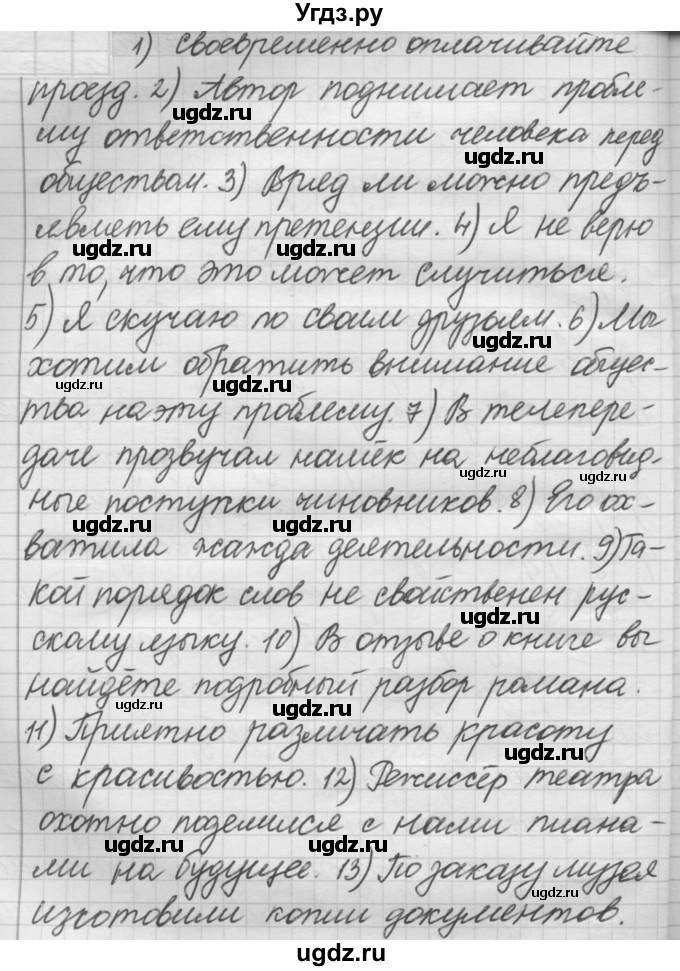 Угдз.ру
1) Своевременно оплачивайте
проезд. 2) Автор поднимает пробле-
му ответственности человека перед
обществом. 3) Вряд ли можно предъ-
являть ему претензии. 4) Я не верю
в то, что это может случиться.
5) Я скучаю по своим друзьям. 6) Мы
хотим обратить внимание общес-
тва на эту проблему. 7) В телепере-
даче прозвучал намёк на неблаговид-
ные поступки чиновников. 8) Его ох-
ватила жажда деятельности. 9) Та-
кой порядок слов не свойственен рус-
скому языку. 10) В отзыве о книге вы
найдёте подробный разбор романа.
11) Приятно различать красоту
с красивостью. 12) Режиссёр театра
охотно поделился с нами плана-
ми на будущее. 13) По заказу музея
изготовили копии документов.
ugdz.ru